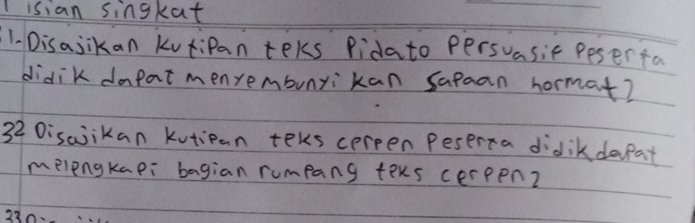 isian singkat
1. Disajikan kutipan teks Pidato persuasif peserta
didik dapat menyembunyikan sapaan hormat?
32 Disajikan kutipan teks cerpen Peserta didik dapat
melengkapi bagian rumpang teks cerpen?